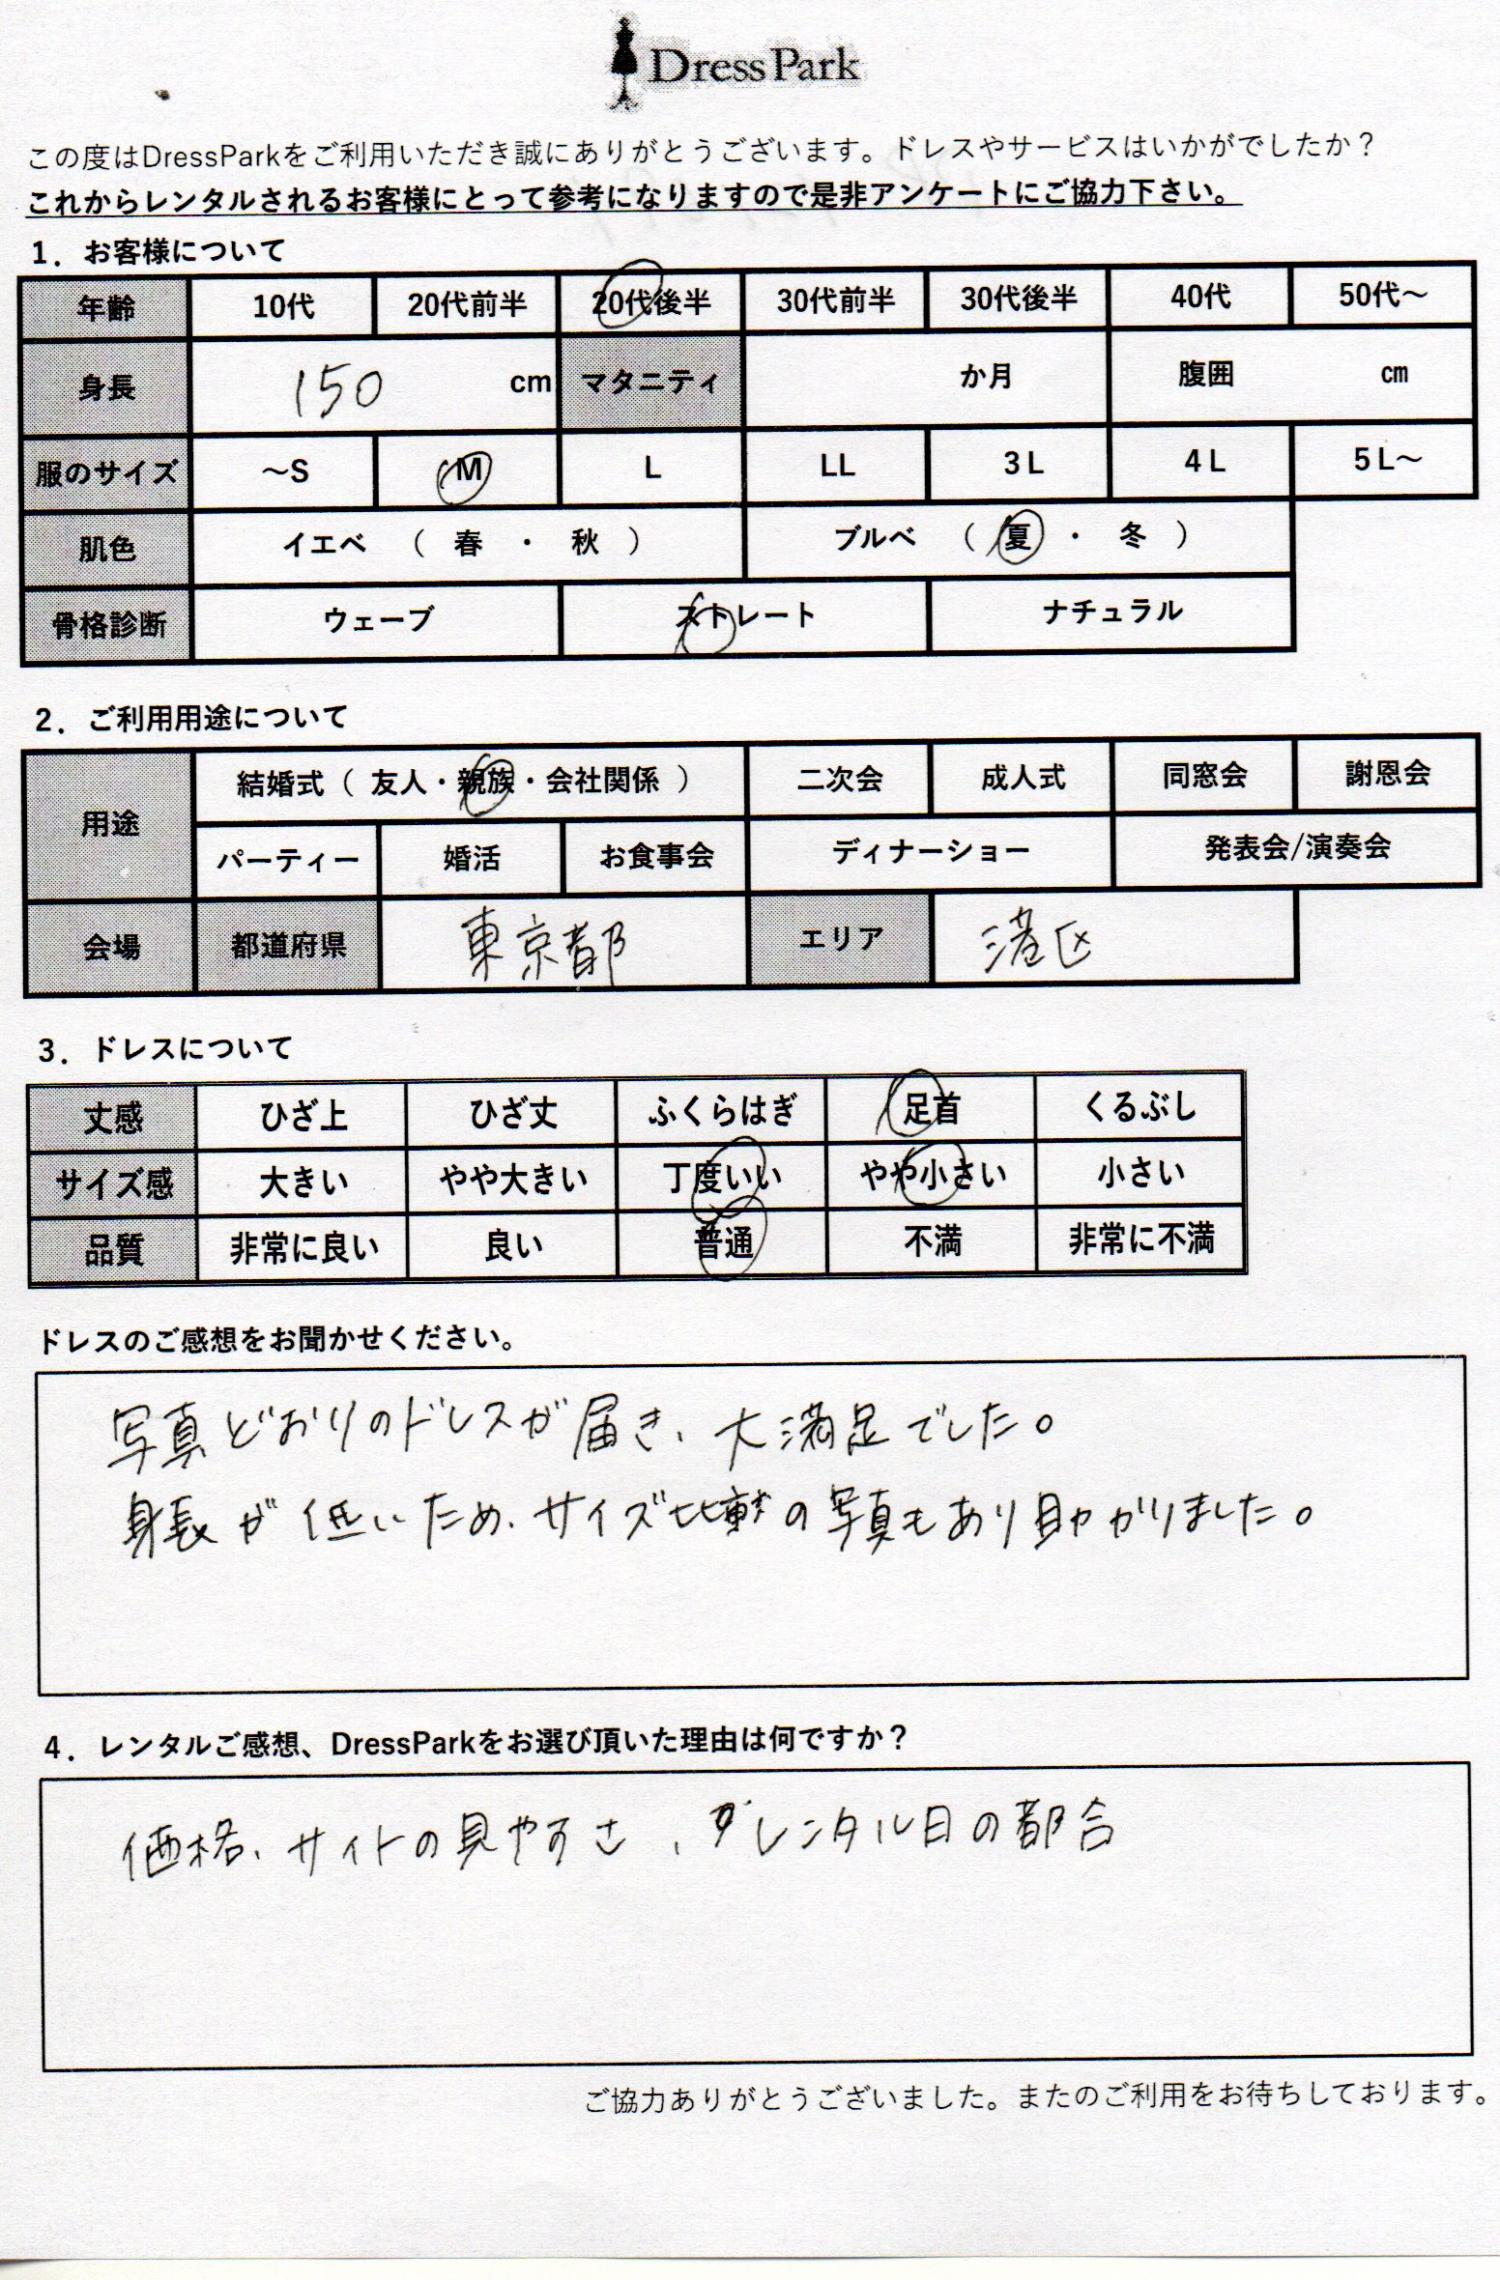 Dress Park
この度はDressParkをご利用いただき誠にありがとうございます。ドレスやサービスはいかがでしたか？
これからレンタルされるお客様にとって参考になりますので是非アンケートにご協力下さい。
1．お客様について
年齢 10代 20代前半 20代後半 30代前半 30代後半 40代 50代～
身長 150 cm マタニティ か月 腹囲 cm
服のサイズ ～S M L LL 3L 4L 5L～
肌色 イエベ （ 春 ・ 秋 ） ブルベ （ 夏 ・ 冬 ）
骨格診断 ウェーブ ストレート ナチュラル
2．ご利用用途について
用途 結婚式（ 友人・親族・会社関係 ） 二次会 成人式 同窓会 謝恩会
パーティー 婚活 お食事会 ディナーショー 発表会/演奏会
会場 都道府県 東京都 エリア 港区
3．ドレスについて
丈感 ひざ上 ひざ丈 ふくらはぎ 足首 くるぶし
サイズ感 大きい やや大きい 丁度いい やや小さい 小さい
品質 非常に良い 良い 普通 不満 非常に不満
ドレスのご感想をお聞かせください。
写真どおりのドレスが届き、大満足でした。
身長が低いため、サイズ比較の写真もあり助かりました。
4．レンタルご感想、DressParkをお選び頂いた理由は何ですか？
価格、サイトの見やすさ、レンタル日の都合
ご協力ありがとうございました。またのご利用をお待ちしております。